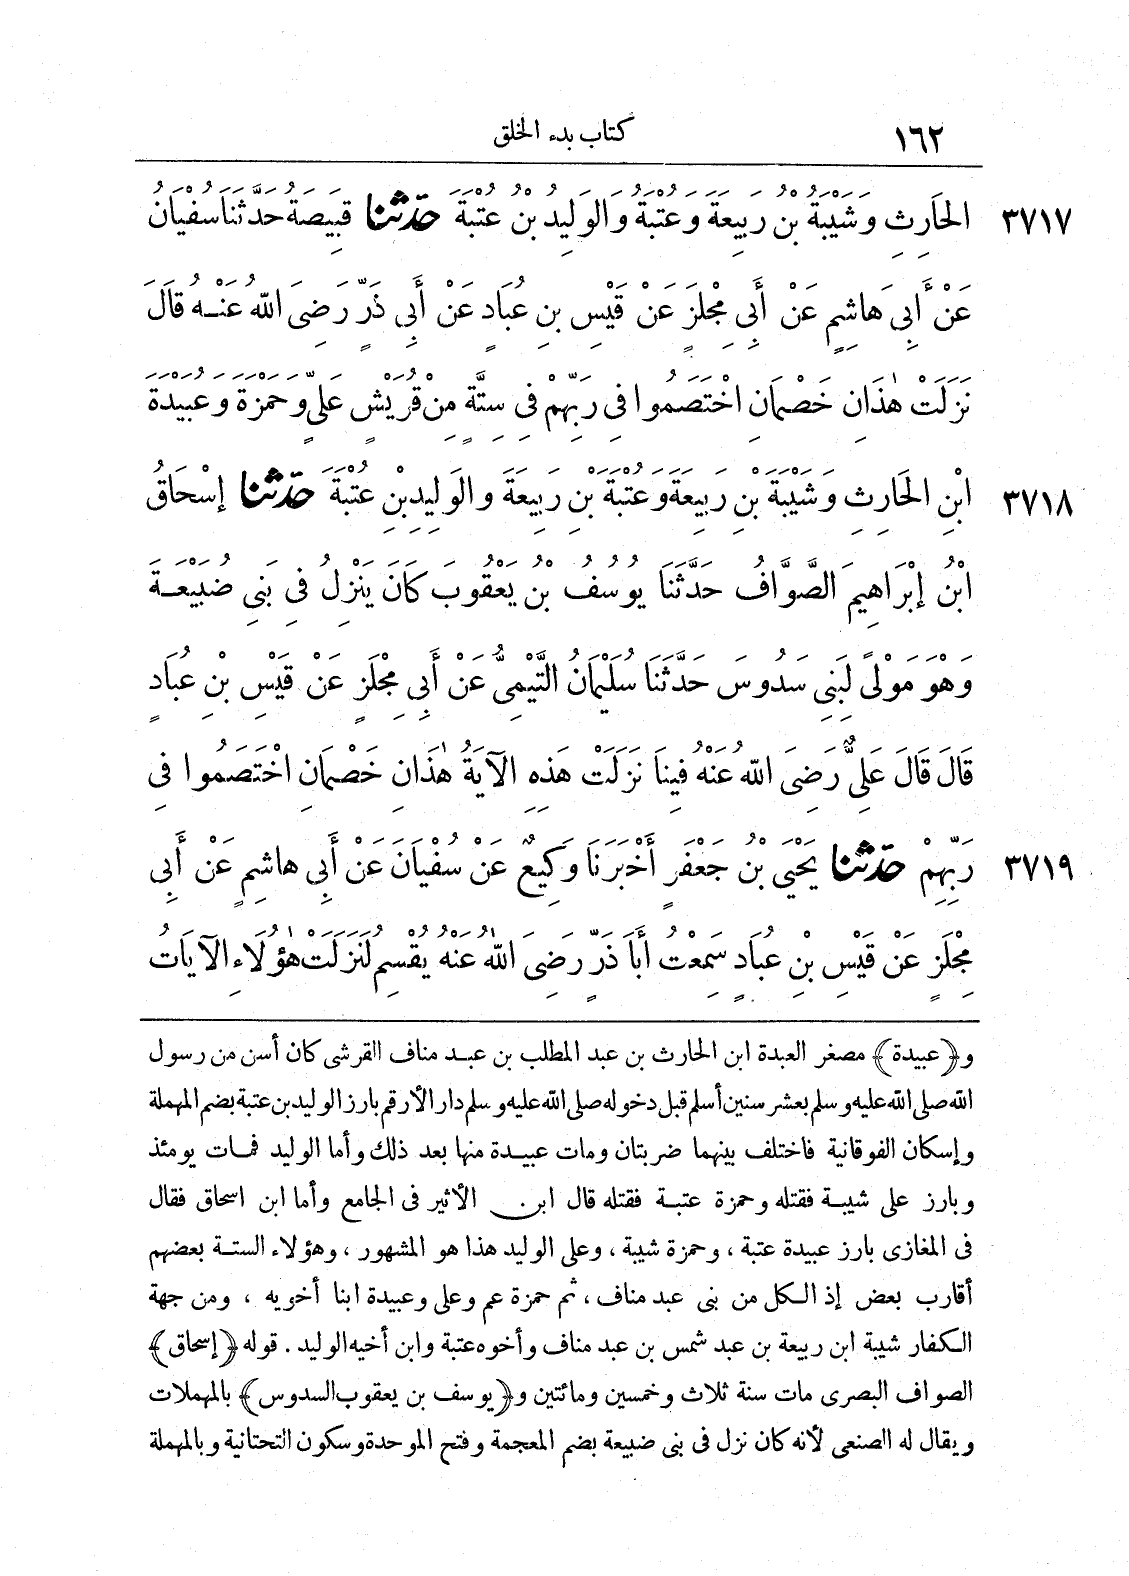 ١٦٢ كتاب بدء الخلق
٣٧١٧ الحَارِثِ وَشَيْبَةُ بْنُ رَبِيعَةَ وَعُتْبَةُ وَالْوَلِيدُ بْنُ عُتْبَةَ حدّثنا قَبِيصَةُ حَدَّثَنَا سُفْيَانُ
عَنْ أَبِي هَاشِمٍ عَنْ أَبِي مِجْلَزٍ عَنْ قَيْسِ بْنِ عُبَادٍ عَنْ أَبِي ذَرٍّ رَضِيَ اللهُ عَنْهُ قَالَ
نَزَلَتْ هٰذَانِ خَصْمَانِ اخْتَصَمُوا فِي رَبِّهِمْ فِي سِتَّةٍ مِنْ قُرَيْشٍ عَلِيٍّ وَحَمْزَةَ وَعُبَيْدَةَ
٣٧١٨ ابْنِ الحَارِثِ وَشَيْبَةَ بْنِ رَبِيعَةَ وَعُتْبَةَ بْنِ رَبِيعَةَ وَالْوَلِيدِ بْنِ عُتْبَةَ حدّثنا إِسْحَاقُ
ابْنُ إِبْرَاهِيمَ الصَّوَّافُ حَدَّثَنَا يُوسُفُ بْنُ يَعْقُوبَ كَانَ يَنْزِلُ فِي بَنِي ضُبَيْعَةَ
وَهْوَ مَوْلًى لِبَنِي سَدُوسَ حَدَّثَنَا سُلَيْمَانُ التَّيْمِيُّ عَنْ أَبِي مِجْلَزٍ عَنْ قَيْسِ بْنِ عُبَادٍ
قَالَ قَالَ عَلِيٌّ رَضِيَ اللهُ عَنْهُ فِينَا نَزَلَتْ هَذِهِ الْآيَةُ هٰذَانِ خَصْمَانِ اخْتَصَمُوا فِي
٣٧١٩ رَبِّهِمْ حدّثنا يَحْيَى بْنُ جَعْفَرٍ أَخْبَرَنَا وَكِيعٌ عَنْ سُفْيَانَ عَنْ أَبِي هاشِمٍ عَنْ أَبِي
مِجْلَزٍ عَنْ قَيْسِ بْنِ عُبَادٍ سَمِعْتُ أَبَا ذَرٍّ رَضِيَ اللهُ عَنْهُ يُقْسِمُ لَنَزَلَتْ هٰؤُلَاءِ الْآيَاتُ
و﴿عبيدة﴾ مصغر العبدة ابن الحارث بن عبد المطلب بن عبد مناف القرشى كان أسن من رسول
الله صلى الله عليه وسلم بعشر سنين أسلم قبل دخوله صلى الله عليه وسلم دار الأرقم بارز الوليد بن عتبة بضم المهملة
وإسكان الفوقانية فاختلف بينهما ضربتان ومات عبيدة منها بعد ذلك وأما الوليد فمات يومئذ
وبارز على شيبة فقتله وحمزة عتبة فقتله قال ابن الأثير فى الجامع وأما ابن اسحاق فقال
فى المغازى بارز عبيدة عتبة ، وحمزة شيبة ، وعلى الوليد هذا هو المشهور ، وهؤلاء الستة بعضهم
أقارب بعض إذ الكل من بنى عبد مناف ، ثم حمزة عم وعلى وعبيدة ابنا أخويه ، ومن جهة
الكفار شيبة ابن ربيعة بن عبد شمس بن عبد مناف وأخوه عتبة وابن أخيه الوليد . قوله ﴿إسحاق﴾
الصواف البصرى مات سنة ثلاث وخمسين ومائتين و﴿يوسف بن يعقوب السدوس﴾ بالمهملات
ويقال له الصنعى لأنه كان نزل فى بنى ضبيعة بضم المعجمة وفتح الموحدة وسكون التحتانية وبالمهملة